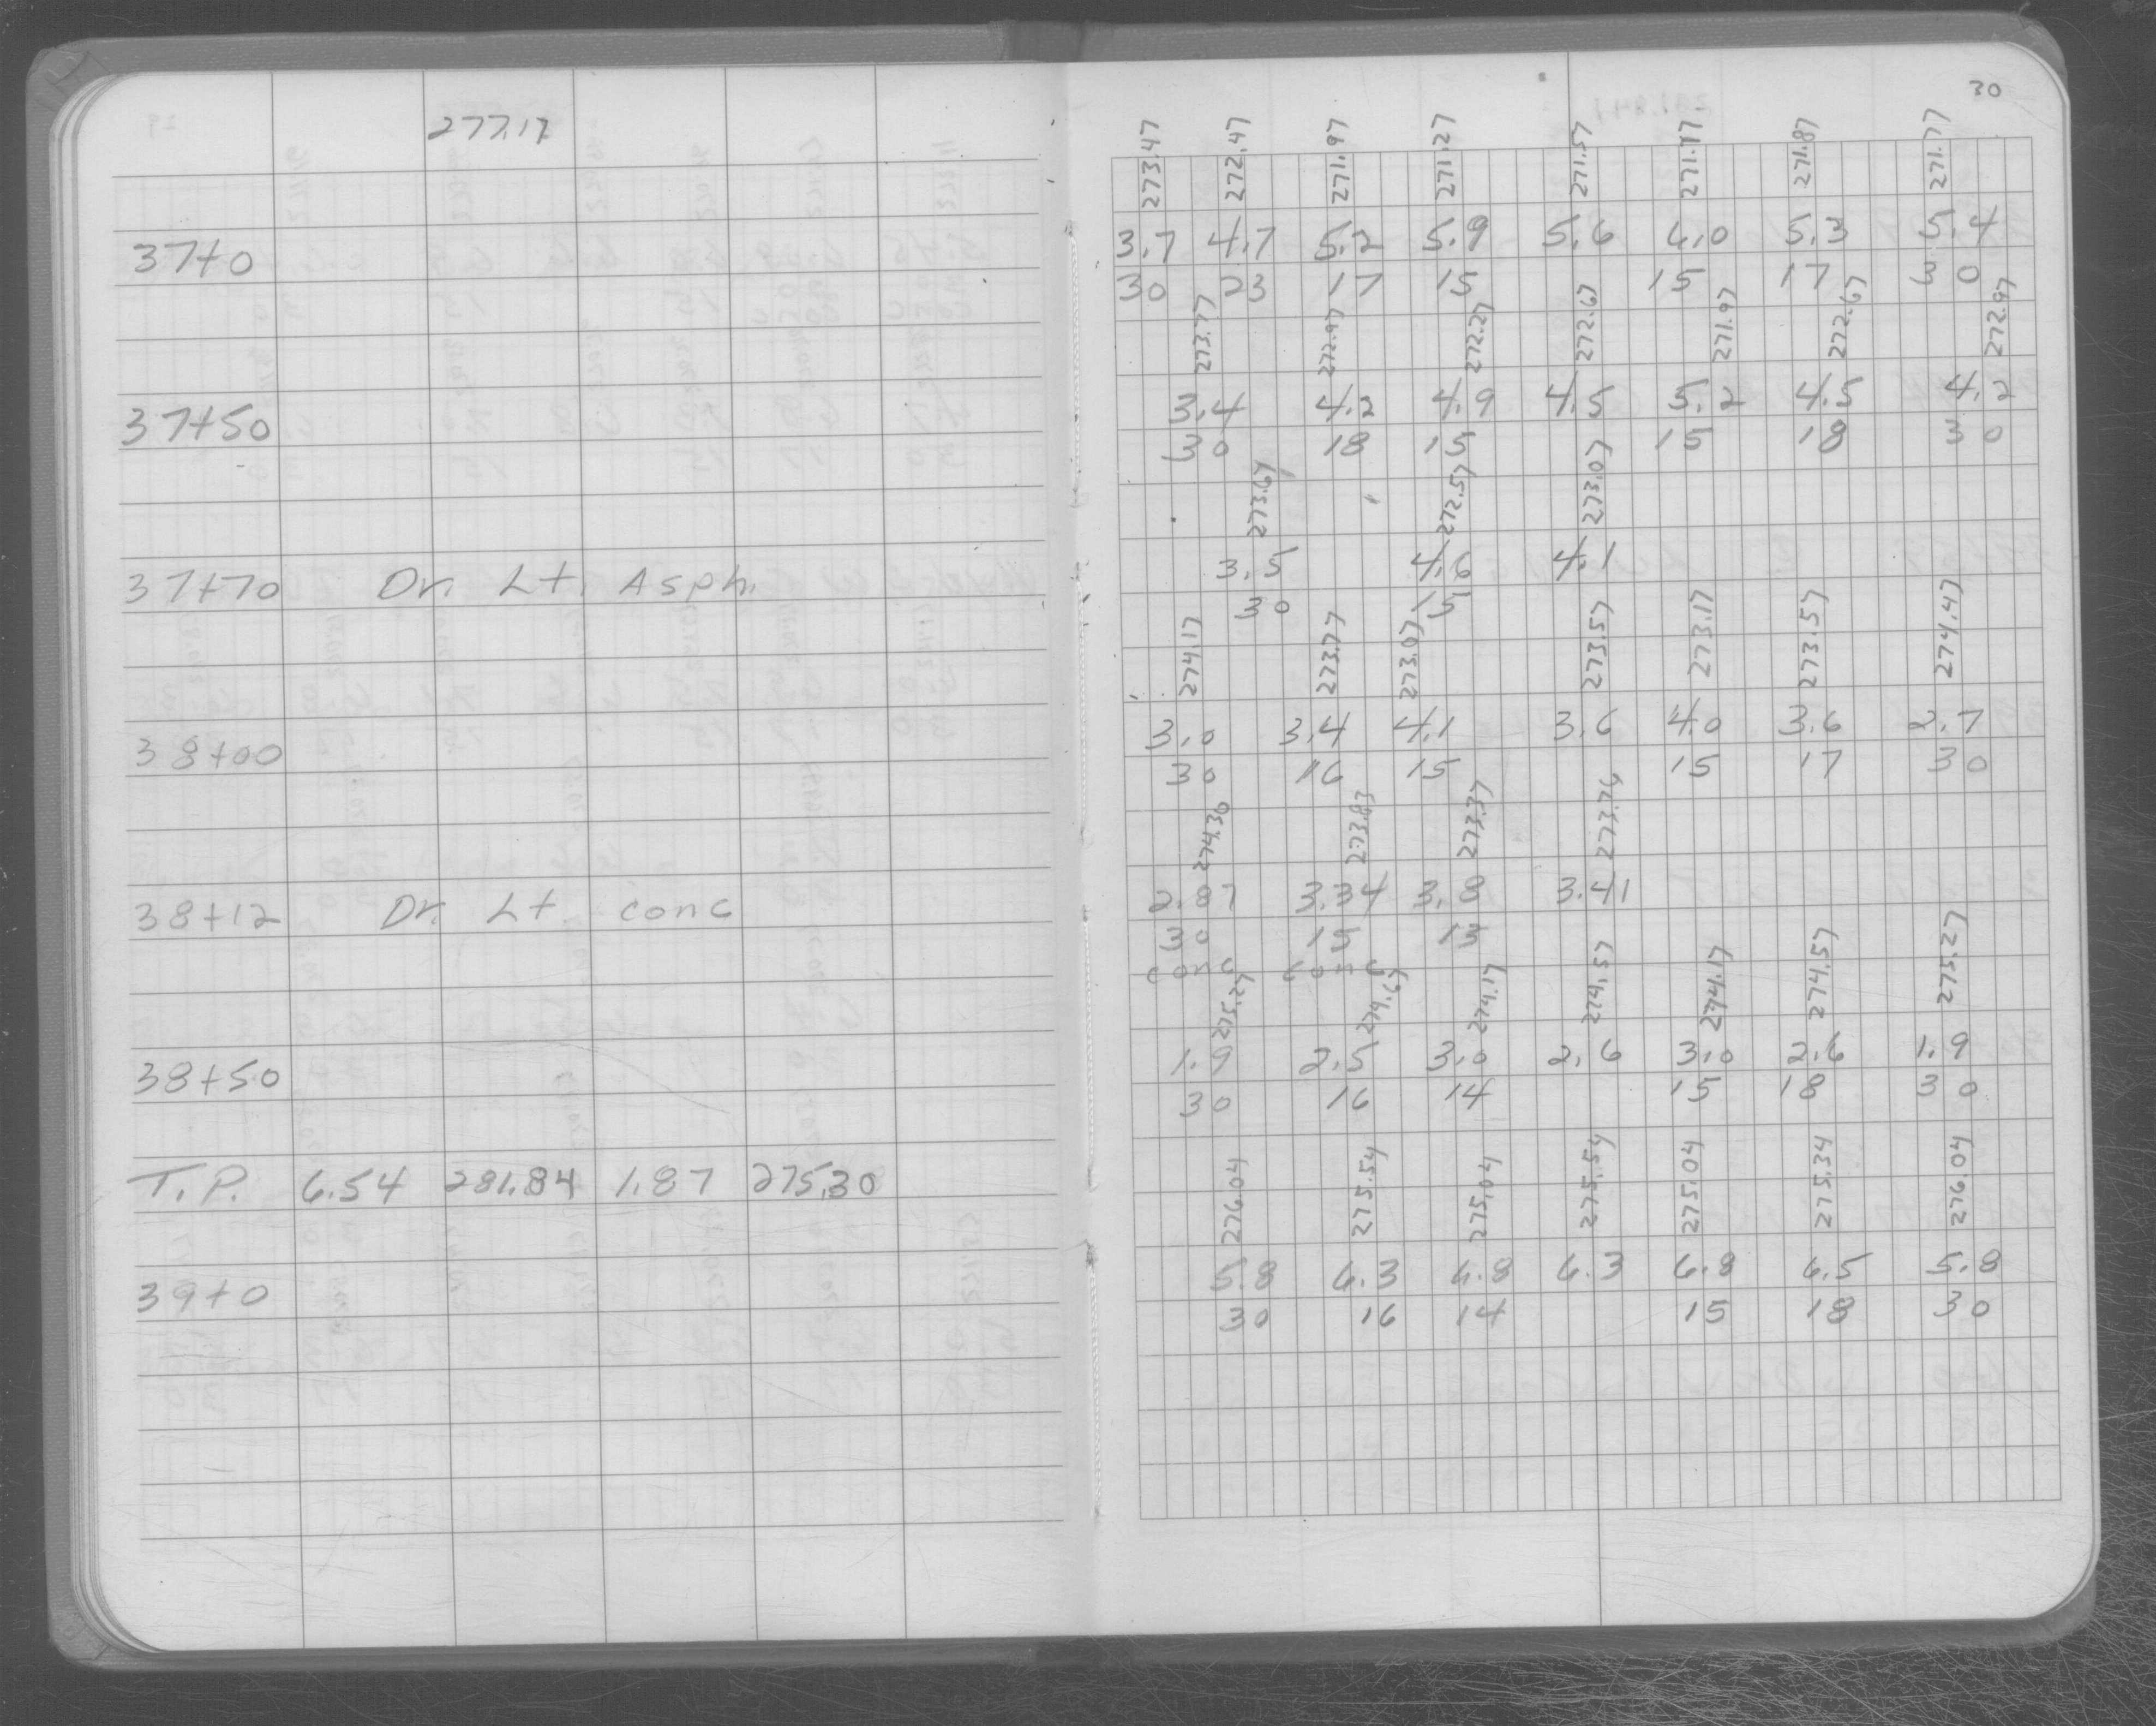 30
277.17
273.47 272.47 271.97 271.27 271.57 271.17 271.87 271.77
3.7 4.7 5.2 5.9 5.6 6.0 5.3 5.4
37+0
30 23 17 15 15 17 30
273.77 272.97 272.27 272.67 271.97 272.67 272.97
3.4 4.2 4.9 4.5 5.2 4.5 4.2
37+50
30 18 15 15 18 30
273.67 272.57 273.07
3.5 4.6 4.1
37+70 Dr. Lt. Asph.
30 15
274.17 273.77 273.07 273.57 273.17 273.57 274.47
3.0 3.4 4.1 3.6 4.0 3.6 2.7
38+00
30 16 15 15 17 30
274.30 273.83 273.37 273.76
2.87 3.34 3.8 3.41
38+12 Dr. Lt conc
30 15 13
conc conc
275.27 274.67 274.17 274.57 274.17 274.57 275.27
1.9 2.5 3.0 2.6 3.0 2.6 1.9
38+50
30 16 14 15 18 30
T.P. 6.54 281.84 1.87 275.30
276.04 275.54 275.04 275.54 275.04 275.34 276.04
5.8 6.3 6.8 6.3 6.8 6.5 5.8
39+0
30 16 14 15 18 30